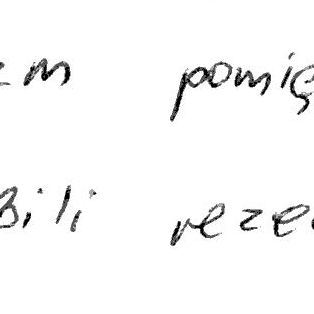 zm pomię
Bili reze